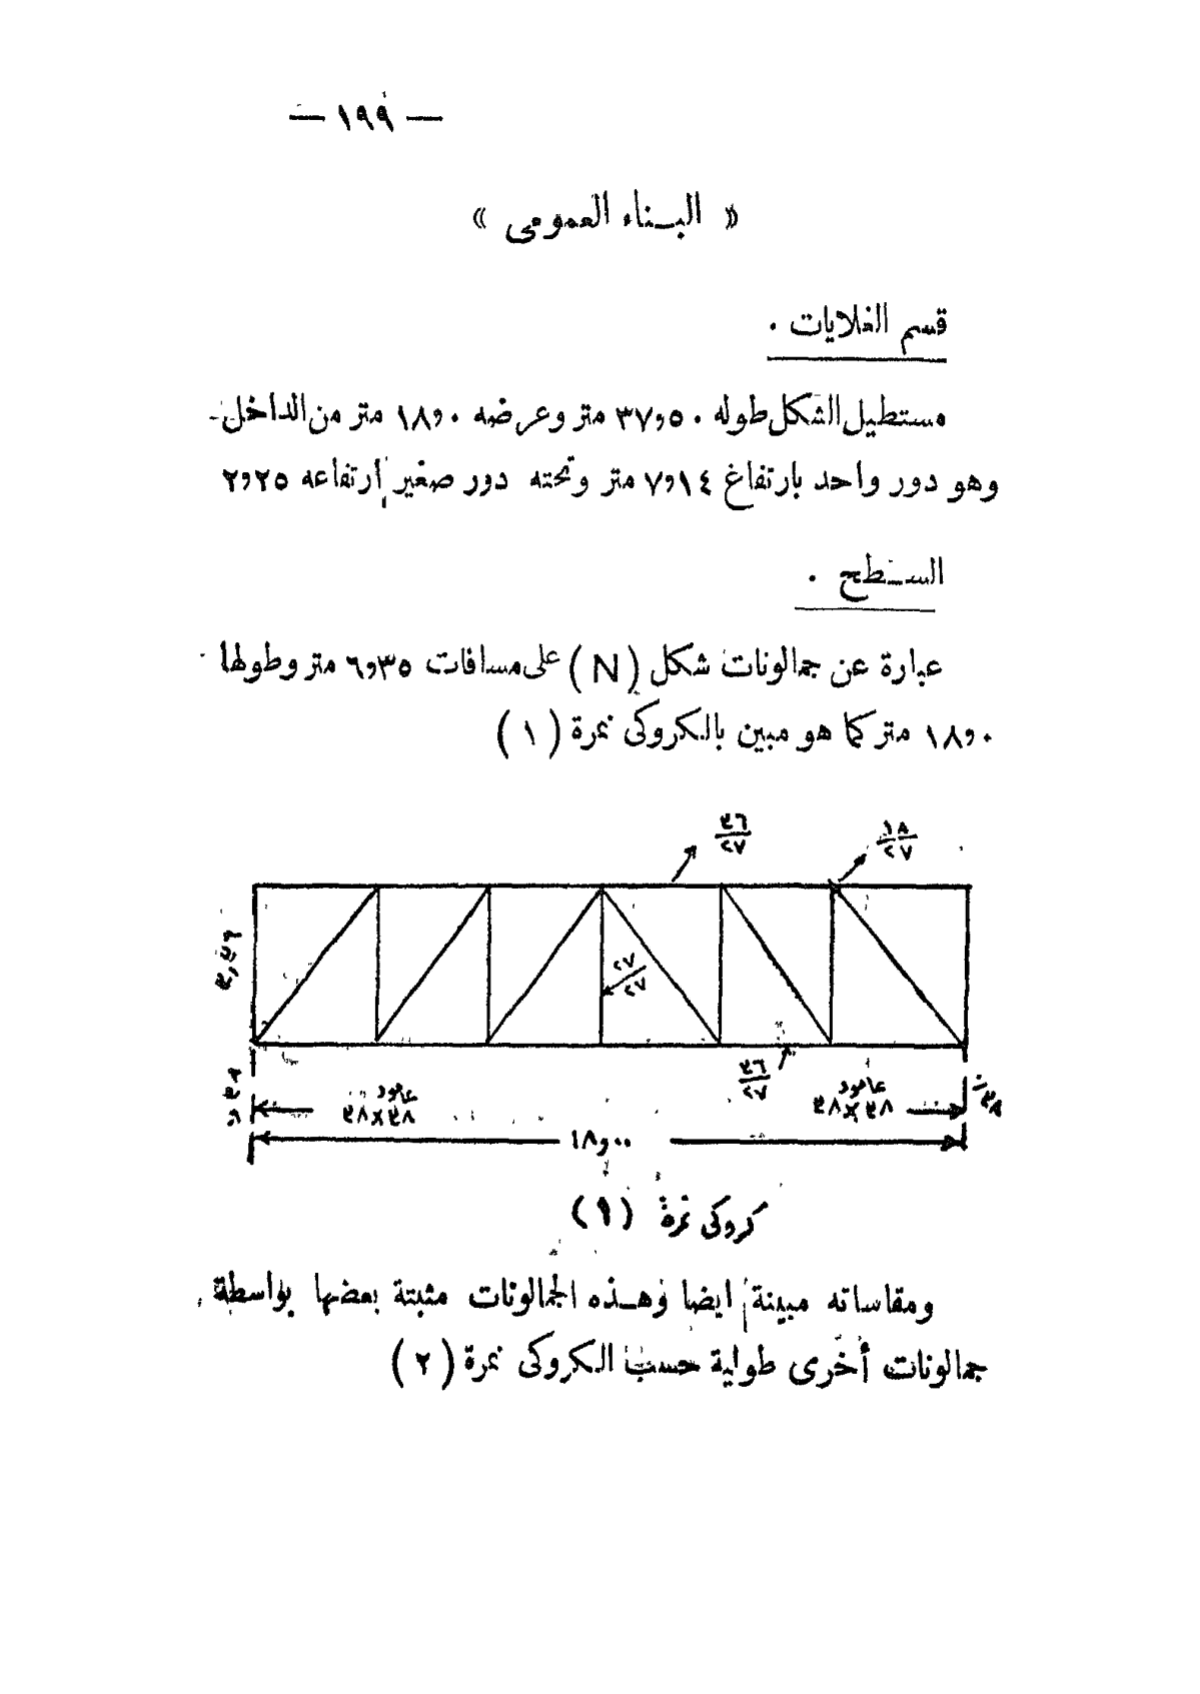 — ١٩٩ —
« البناء العمومى »
قسم الغلايات .
مستطيل الشكل طوله ٣٧,٥٠ متر وعرضه ١٨,٠ متر من الداخل
وهو دور واحد بارتفاغ ٧,١٤ متر وتحته دور صغير إرتفاعه ٢,٢٥
السطح .
عبارة عن جمالونات شكل ( N ) على مسافات ٦,٣٥ متر وطولها
١٨,٠ متر كما هو مبين بالكروكى نمرة ( ١ )
٣٦/٢٧
١٨/٢٧
٢٧/٢٧
٣٦/٢٧
عامود
٣٨×٣٨
عامود
٣٨×٣٨
١٨,٠٠
كروكى نمرة (١)
ومقاساته مبينة ايضا وهذه الجمالونات مثبتة بعضها بواسطة
جمالونات أخرى طولية حسب الكروكى نمرة ( ٢ )